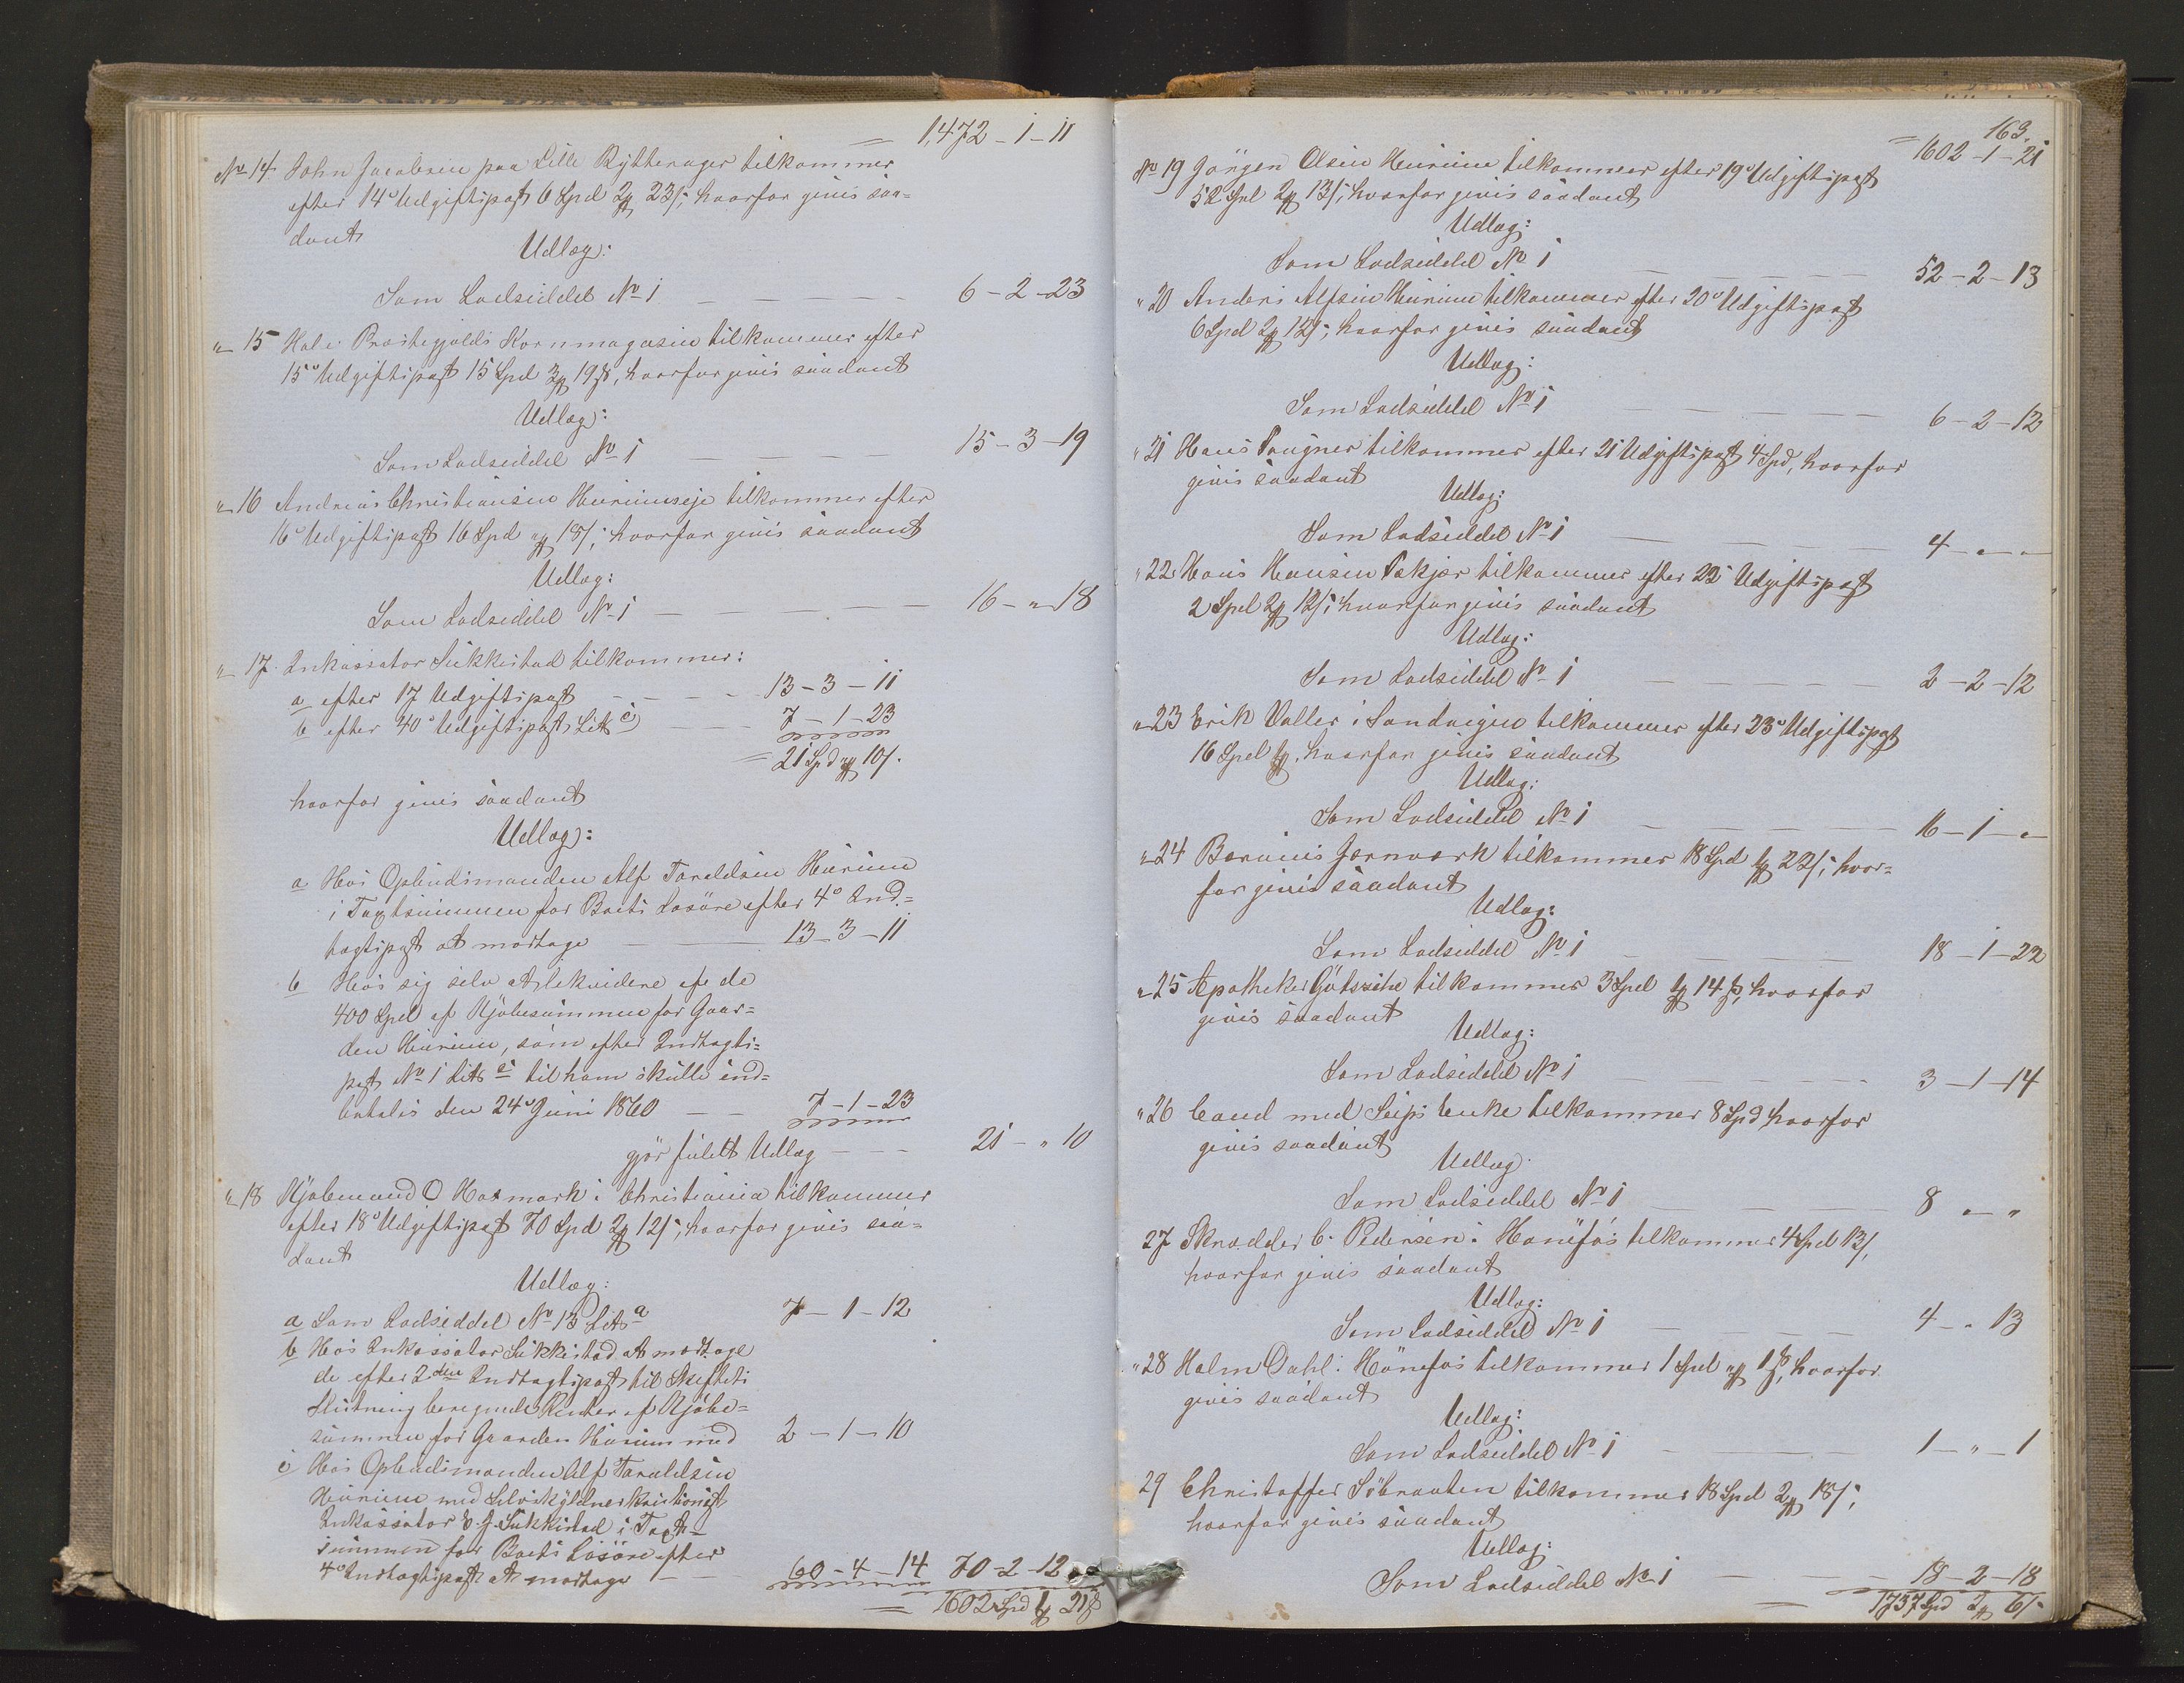 = 1,472-1-11
No 14 John Jacobsen paa Lille Rytterager tilkommer
efter 14de Udgiftspost 6 Spd 2 ₰ 23 s; hvorfor gives saa=
dant
Udlæg:
Som Lodseddel No 1 — — — — 6-2-23
" 15 Hole Præstegjelds Kornmagasin tilkommer efter
15de Udgiftspost 15 Spd 3 ₰ 19 s, hvorfor gives saadant
Udlæg:
Som Lodseddel No 1 — — — — 15-3-19
" 16 Andreas Christiansen Hurumseje tilkommer efter
16de Udgiftspost 16 Spd " ₰ 18 s; hvorfor gives saadant
Udlæg:
Som Lodseddel No 1 — — — — 16-"-18
" 17 Inkassator Sukkestad tilkommer:
a efter 17 Udgiftspost — — — 13-3-11
b efter 40de Udgiftspost Litr c) — — 7-1-23
= 21 Spd " ₰ 10 s.
hvorfor gives saadant
Udlæg:
a Hos Opbudsmanden Alf Taraldsen Hurum
i Taxtsummen for Boets Løsøre efter 4de Ind=
tægtspost at modtage — — 13-3-11
b Hos sig selv at likvidere af de
400 Spd af Kjøbesummen for Gaar=
den Hurum, som efter Indtægts=
post No 1 Litr c til ham skulle ind=
betales den 24de Juni 1860 — — 7-1-23
gjør fuldt Udlæg — — — 21-"-10
" 18 Kjøbmand O Hasmark i Christiania tilkommer
efter 18de Udgiftspost 70 Spd 2 ₰ 12 s; hvorfor gives saa=
dant
Udlæg:
a Som Lodseddel No 13 Litr a 7-1-12
b Hos Inkassator Sukkestad at modtage
de efter 2den Indtægtspost til Skiftets
Slutning beregnede Renter af Kjøbe=
summen for Gaarden Hurum med 2-1-10
c Hos Opbudsmanden Alf Taraldsen
Hurum med Selvskyldnerkautionist
Inkassator E. J. Sukkestad i Taxt=
summen for Boets Løsøre efter
4de Indtægtspost at modtage — — 60-4-14 70-2-12
= 1602 Spd 1 ₰ 21 s
163.
= 1602-1-21
No 19 Jørgen Olsen Hurum tilkommer efter 19de Udgiftspost
52 Spd 2 ₰ 13 s; hvorfor gives saadant
Udlæg:
Som Lodseddel No 1 — — — — 52-2-13
" 20 Anders Alfsen Hurum tilkommer efter 20de Udgiftspost
6 Spd 2 ₰ 12 s; hvorfor gives saadant
Udlæg:
Som Lodseddel No 1 — — — — 6-2-12
" 21 Hans Vaugner tilkommer efter 21 Udgiftspost 4 Spd, hvorfor
gives saadant
Udlæg:
Som Lodseddel No 1 — — — — 4-"-"
" 22 Hans Hansen Askjær tilkommer efter 22de Udgiftspost
2 Spd 2 ₰ 12 s; hvorfor gives saadant
Udlæg:
Som Lodseddel No 1 — — — — 2-2-12
" 23 Erik Valler i Sandvigen tilkommer efter 23de Udgiftspost
16 Spd 1 ₰, hvorfor gives saadant
Udlæg:
Som Lodseddel No 1 — — — — 16-1-"
" 24 Bærums Jernværk tilkommer 18 Spd 1 ₰ 22 s; hvor=
for gives saadant
Udlæg:
Som Lodseddel No 1 — — — — 18-1-22
" 25 Apotheker Götzsche tilkommer 3 Spd 1 ₰ 14 s, hvorfor
gives saadant
Udlæg:
Som Lodseddel No 1 — — — — 3-1-14
" 26 Cand med Seips Enke tilkommer 8 Spd hvorfor
gives saadant
Udlæg
Som Lodseddel No 1 — — — — 8 " "
27 Skrædder C. Pedersen i Hønefos tilkommer 4 Spd 13 s,
hvorfor gives saadant
Udlæg:
Som Lodseddel No 1 — — — — 4-" 13
" 28 Halm Dahl i Hønefos tilkommer 1 Spd " ₰ 1 s, hvorfor
gives saadant
Udlæg:
Som Lodseddel No 1 — — — — 1-"-1
29 Christoffer Søbraaten tilkommer 18 Spd 2 ₰ 18 s;
hvorfor gives saadant
Udlæg:
Som Lodseddel No 1 — — — — 18-2-18
= 1737 Spd 2 ₰ 6 s.